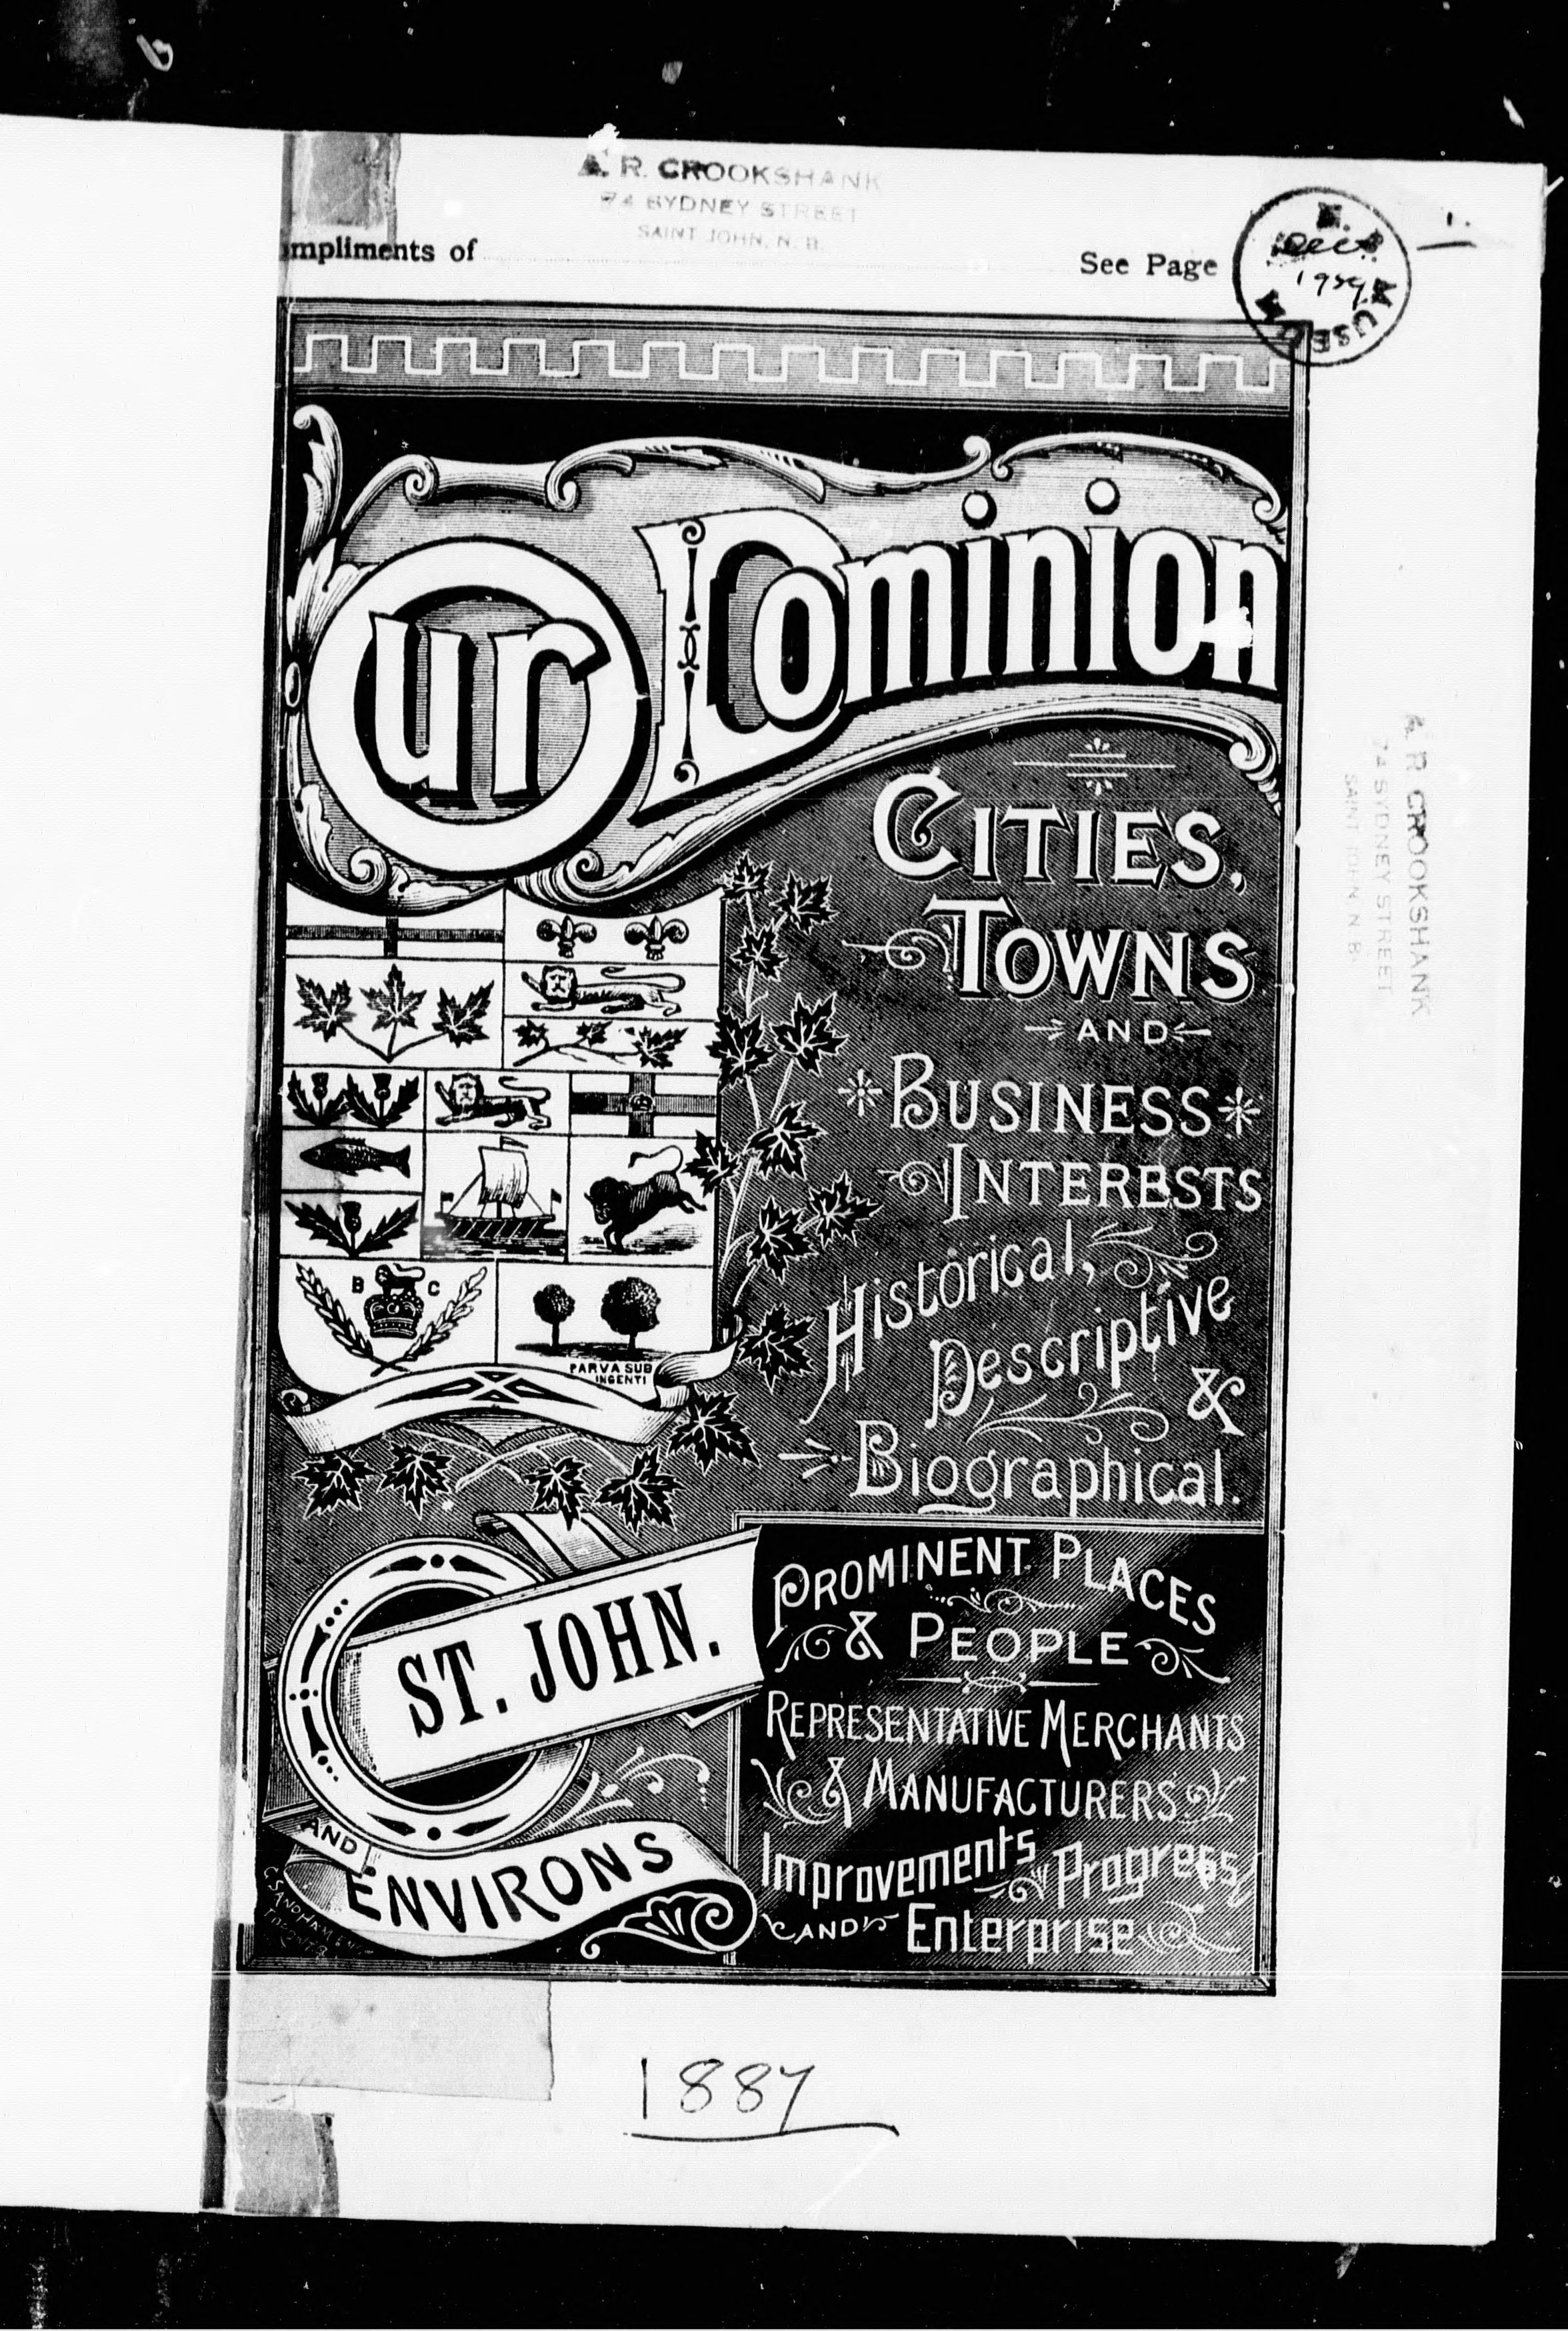 A. R. CROOKSHANK
74 SYDNEY STREET
SAINT JOHN, N. B.
mpliments of
See Page
Dec.
1929
MUSEUM
1.
Our Dominion
CITIES,
TOWNS
AND
BUSINESS
INTERESTS
Historical,
Descriptive
&
Biographical.
B C
PARVA SUB
INGENTI
ST. JOHN.
AND
ENVIRONS
PROMINENT PLACES
& PEOPLE
REPRESENTATIVE MERCHANTS
& MANUFACTURERS
Improvements Progress,
AND Enterprise
1887
A R CROOKSHANK
74 SYDNEY STREET
SAINT JOHN N B.